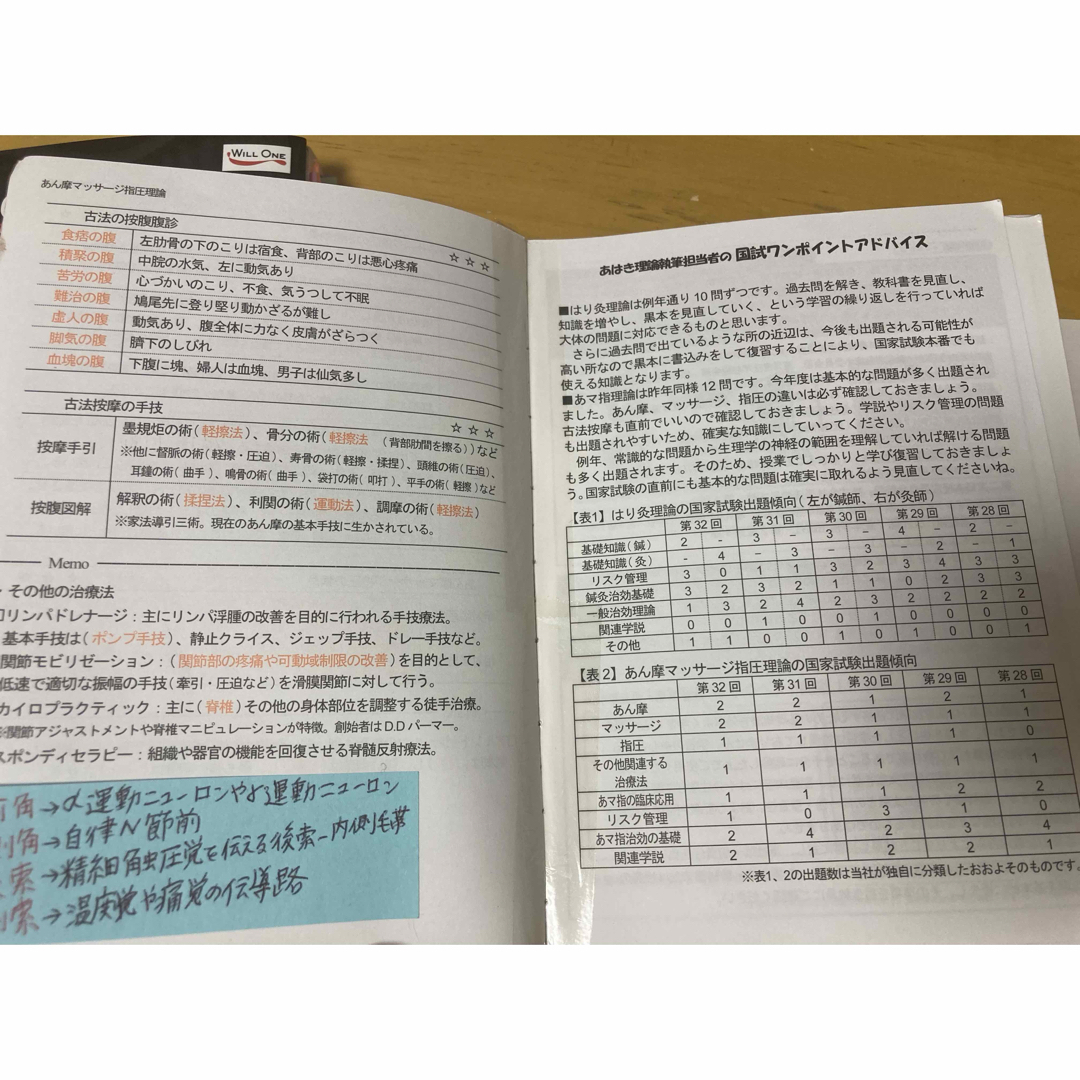 WILL ONE
あん摩マッサージ指圧理論
古法の按腹腹診
☆☆☆
食痞の腹 左肋骨の下のこりは宿食、背部のこりは悪心疼痛
積聚の腹 中脘の水気、左に動気あり
苦労の腹 心づかいのこり、不食、気うつして不眠
難治の腹 鳩尾先に登り堅り動かざるが難し
虚人の腹 動気あり、腹全体に力なく皮膚がざらつく
脚気の腹 臍下のしびれ
血塊の腹 下腹に塊、婦人は血塊、男子は仙気多し
古法按摩の手技
☆☆☆
按摩手引 墨規矩の術(軽擦法)、骨分の術(軽擦法 (背部肋間を擦る))など
※他に督脈の術(軽擦・圧迫)、寿骨の術(軽擦・揉捏)、頭維の術(圧迫)、
耳鐘の術(曲手)、鳴骨の術(曲手)、袋打の術(叩打)、平手の術(軽擦)など
按腹図解 解釈の術(揉捏法)、利関の術(運動法)、調摩の術(軽擦法)
※家法導引三術。現在のあん摩の基本手技に生かされている。
Memo
・その他の治療法
リンパドレナージ：主にリンパ浮腫の改善を目的に行われる手技療法。
基本手技は(ポンプ手技)、静止クライス、ジェップ手技、ドレー手技など。
関節モビリゼーション：(関節部の疼痛や可動域制限の改善)を目的として、
低速で適切な振幅の手技(牽引・圧迫など)を滑膜関節に対して行う。
カイロプラクティック：主に(脊椎)その他の身体部位を調整する徒手治療。
※関節アジャストメントや脊椎マニピュレーションが特徴。創始者はD.Dパーマー。
スポンディセラピー：組織や器官の機能を回復させる脊髄反射療法。
角→α運動ニューロンやγ運動ニューロン
角→自律N節前
索→精細触圧覚を伝える後索-内側毛帯
索→温度覚や痛覚の伝導路
あはき理論執筆担当者の 国試ワンポイントアドバイス
■はり灸理論は例年通り10問ずつです。過去問を解き、教科書を見直し、
知識を増やし、黒本を見直していく、という学習の繰り返しを行っていれば
大体の問題に対応できるものと思います。
さらに過去問で出ているような所の近辺は、今後も出題される可能性が
高い所なので黒本に書込みをして復習することにより、国家試験本番でも
使える知識となります。
■あマ指理論は昨年同様12問です。今年度は基本的な問題が多く出題され
ました。あん摩、マッサージ、指圧の違いは必ず確認しておきましょう。
古法按摩も直前でいいので確認しておきましょう。学説やリスク管理の問題
も出題されやすいため、確実な知識にしていってください。
例年、常識的な問題から生理学の神経の範囲を理解していれば解ける問題
も多く出題されます。そのため、授業でしっかりと学び復習しておきましょ
う。国家試験の直前にも基本的な問題は確実に取れるよう見直してくださいね。
【表1】はり灸理論の国家試験出題傾向(左が鍼師、右が灸師)
第32回 第31回 第30回 第29回 第28回
基礎知識(鍼) 2 - 3 - 3 - 4 - 2 -
基礎知識(灸) - 4 - 3 - 3 - 2 - 1
リスク管理 3 0 1 1 3 2 3 4 3 3
鍼灸治効基礎 3 2 3 2 1 1 0 2 3 3
一般治効理論 1 3 2 4 2 3 2 2 2 2
関連学説 0 0 1 0 0 1 0 0 0 0
その他 1 1 0 0 1 0 1 0 0 1
【表2】あん摩マッサージ指圧理論の国家試験出題傾向
第32回 第31回 第30回 第29回 第28回
あん摩 2 2 1 2 1
マッサージ 2 2 1 1 1
指圧 1 1 1 1 0
その他関連する
治療法 1 1 1 1 1
あマ指の臨床応用 1 1 1 2 2
リスク管理 1 0 3 1 0
あマ指治効の基礎 2 4 2 3 4
関連学説 2 1 2 2 1
※表1、2の出題数は当社が独自に分類したおおよそのものです。